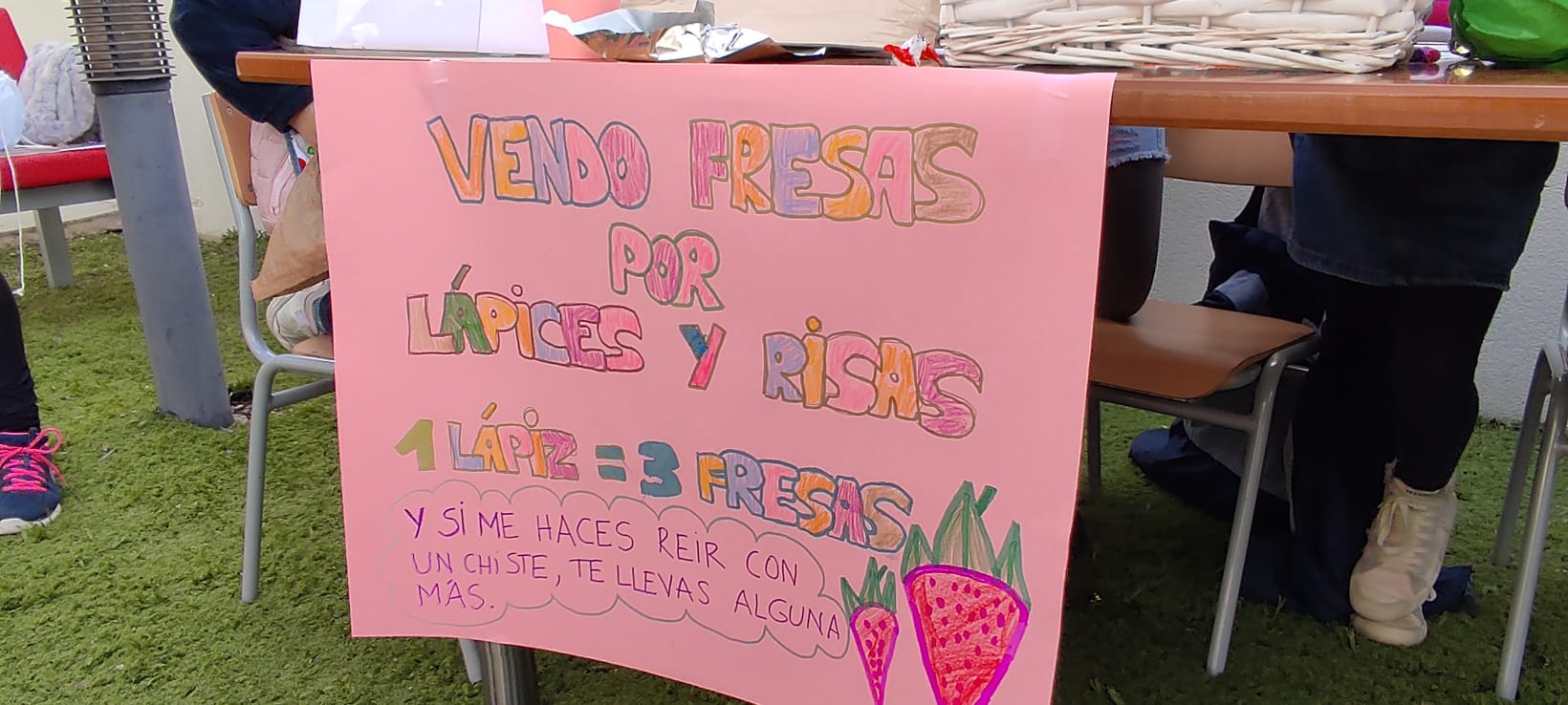 VENDO FRESAS
POR
LÁPICES Y RISAS
1 LÁPIZ = 3 FRESAS
Y SI ME HACES REIR CON
UN CHISTE, TE LLEVAS ALGUNA
MÁS.